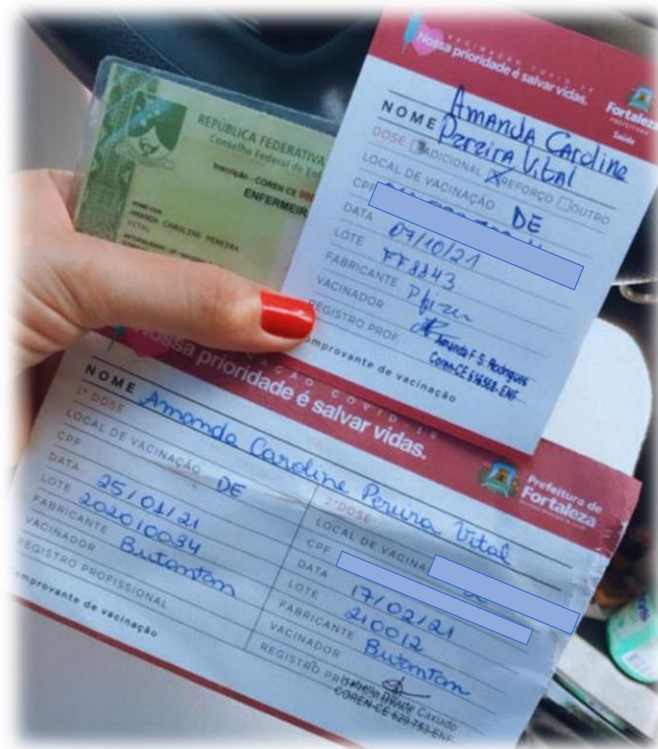 REPÚBLICA FEDERATIVA
Conselho Federal de Enf
Inscrição - COREN-CE
ENFERMEIR
AMANDA CAROLINE PEREIRA
VITAL
VACINAÇÃO COVID-19
Nossa prioridade é salvar vidas.
Fortaleza
PREFEITURA
Saúde
NOME Amanda Caroline
Pereira Vital
DOSE ADICIONAL REFORÇO OUTRO
LOCAL DE VACINAÇÃO DE
CPF
DATA 07/10/21
LOTE FF8843
FABRICANTE Pfizer
VACINADOR
REGISTRO PROF. Amanda F. S. Rodrigues
Coren-CE
omprovante de vacinação
AÇÃO COVID-19
Nossa prioridade é salvar vidas.
Prefeitura de
Fortaleza
NOME Amanda Caroline Pereira Vital
1ª DOSE
LOCAL DE VACINAÇÃO DE
CPF
DATA 25/01/21
LOTE 202010034
FABRICANTE Butantan
VACINADOR
REGISTRO PROFISSIONAL
omprovante de vacinação
2ª DOSE
LOCAL DE VACINA
CPF
DATA 17/02/21
LOTE 210012
FABRICANTE Butantan
VACINADOR
REGISTRO
Caxiado
COREN-CE